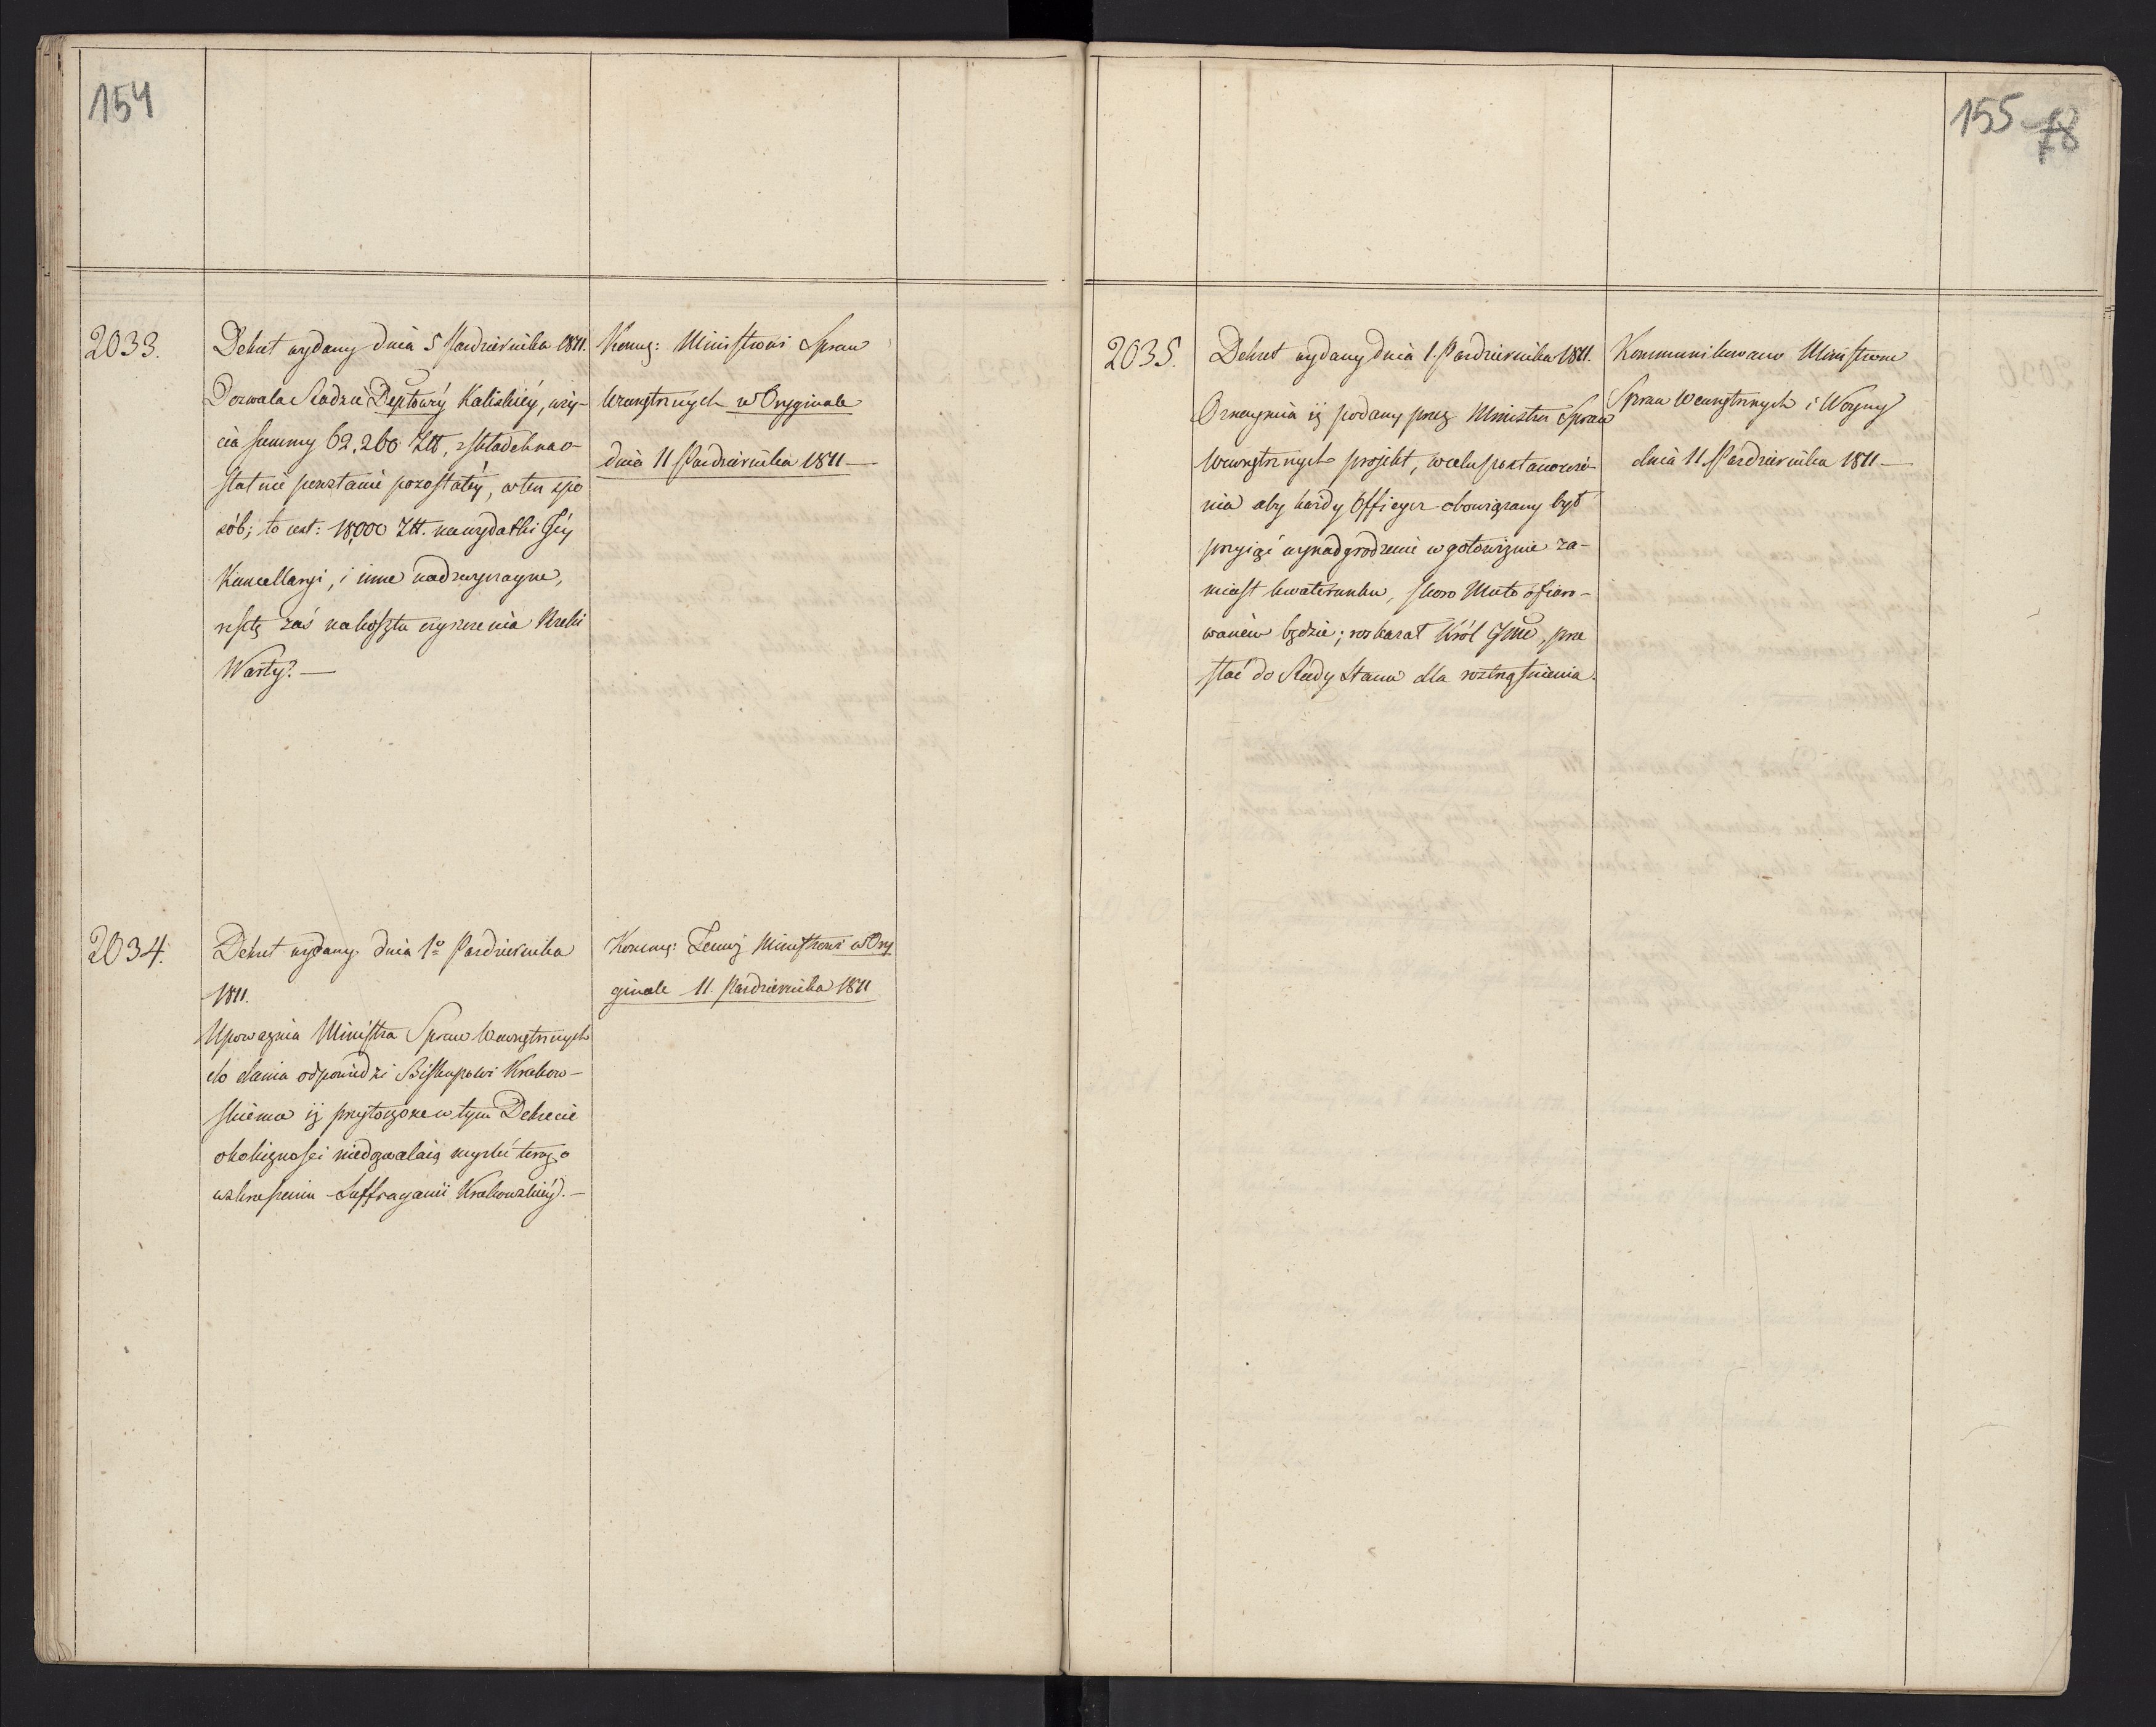 154
2033.
Dekret wydany dnia 5 Pazdziernika 1811.
Dozwala Radzie Deptowéy Kaliskiéy, uży-
cia summy 62,260 Złł, z składek na o-
statnie powstanie pozostałéy, w ten spo
sób; to iest: 18,000 Złł. na wydatki Jéy
Kancellaryi, i inne nadzwyczayne,
resztę zaś na koszta czyszczenia Rzeki
Warty. —
Komuq: Ministrowi Spraw
Wewnętrznych w Oryginale
dnia 11 Pazdziernika 1811 —
2034.
Dekret wydany dnia 1o Pazdziernika
1811.
Upoważnia Ministra Spraw Wewnętrznych
do dania odpowiedzi Biskupowi Krakow-
skiemu iż przytoczone w tym Dekrecie
okoliczności niedozwalaią myśleć teraz o
wskrzeszeniu Suffraganii Krakowskiéy. —
Komuq: Temuż Ministrowi w Ory
ginale 11. Pazdziernika 1811
155 78
2035.
Dekret wydany dnia 1. Pazdziernika 1811.
Oznaymia iż podany przez Ministra Spraw
Wewnętrznych projekt, w celu postanowie-
nia aby każdy Officyer obowiązany był
przyiąć wynadgrodzenie w gotowiznie za-
miast kwaterunku, skoro Mu to ofiaro-
waném będzie; rozkazał Król Jmć, prze
słać do Rady Stanu dla roztrząśnienia.
Kommunikowano Ministrom
Spraw Wewnętrznych i Woyny
dnia 11. Pazdziernika 1811 —